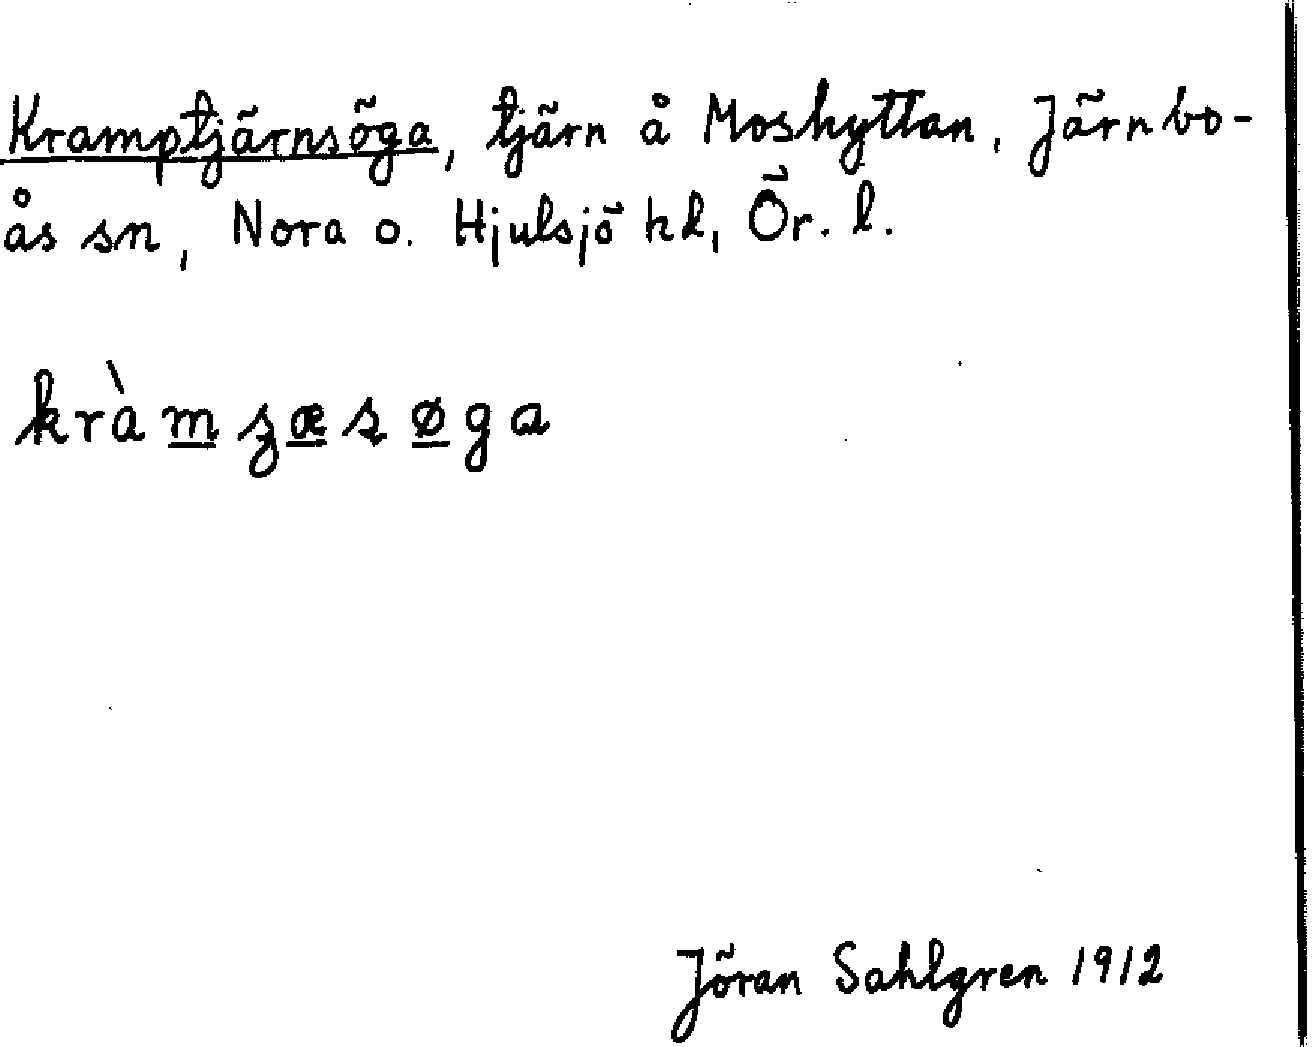 Kramptjärnsöga, tjärn å Moshyttan, Järnbo-
ås sn, Nora o. Hjulsjö hd, Ör. l.
kràmʒæsøga
Jöran Sahlgren 1912